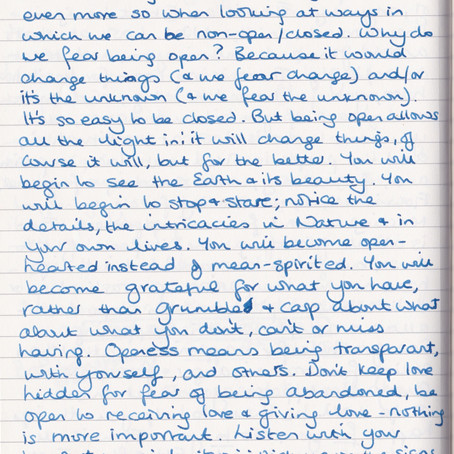 even more so when looking at ways in
which we can be non-open/closed. Why do
we fear being open? Because it would
change things (& we fear change) and/or
it's the unknown (& we fear the unknown).
It's so easy to be closed. But being open allows
all the light in: it will change things, of
course it will, but for the better. You will
begin to see the Earth & its beauty. You
will begin to stop & stare; notice the
details, the intricacies in Nature & in
your own lives. You will become open-
hearted instead of mean-spirited. You will
become grateful for what you have,
rather than grumble & carp about what
about what you don't, can't or miss
having. Openess means being transparant,
with yourself, and others. Don't keep love
hidden for fear of being abandoned, be
open to receiving love & giving love - nothing
is more important. Listen with your